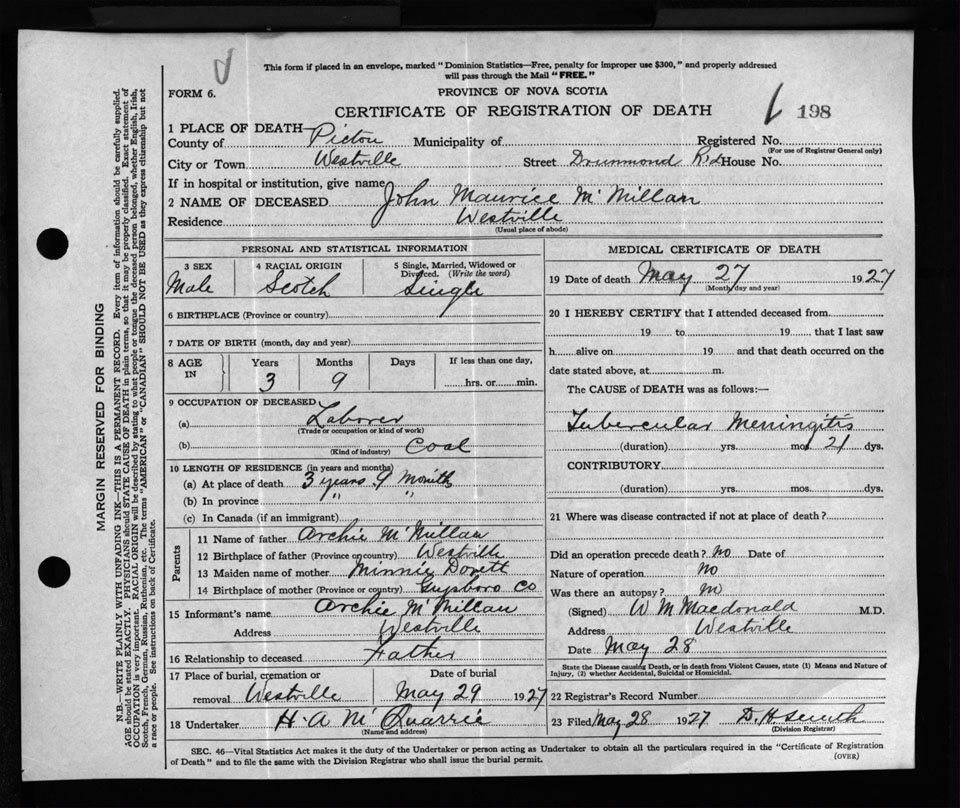 This form if placed in an envelope, marked "Dominion Statistics—Free, penalty for improper use $300," and properly addressed
will pass through the Mail "FREE."
FORM 6.
PROVINCE OF NOVA SCOTIA
CERTIFICATE OF REGISTRATION OF DEATH
198
1 PLACE OF DEATH—
County of Pictou Municipality of Registered No.
(For use of Registrar General only)
City or Town Westville Street Drummond Rd House No.
If in hospital or institution, give name
2 NAME OF DECEASED John Maurice McMillan
Residence Westville
(Usual place of abode)
PERSONAL AND STATISTICAL INFORMATION
3 SEX 4 RACIAL ORIGIN 5 Single, Married, Widowed or
Divorced. (Write the word)
Male Scotch Single
6 BIRTHPLACE (Province or country)
7 DATE OF BIRTH (month, day and year)
8 AGE IN Years Months Days If less than one day,
3 9 hrs. or min.
9 OCCUPATION OF DECEASED
(a) Laborer
(Trade or occupation or kind of work)
(b) Coal
(Kind of industry)
10 LENGTH OF RESIDENCE (in years and months)
(a) At place of death 3 years 9 Months
(b) In province " "
(c) In Canada (if an immigrant)
Parents
11 Name of father Archie McMillan
12 Birthplace of father (Province or country) Westville
13 Maiden name of mother Minnie Dorett
14 Birthplace of mother (Province or country) Guysboro Co
15 Informant's name Archie McMillan
Address Westville
16 Relationship to deceased Father
17 Place of burial, cremation or Date of burial
removal Westville May 29 1927
18 Undertaker H. A. McQuarrie
(Name and address)
MEDICAL CERTIFICATE OF DEATH
19 Date of death May 27 1927
(Month, day and year)
20 I HEREBY CERTIFY that I attended deceased from
19 to 19 that I last saw
h alive on 19 and that death occurred on the
date stated above, at m.
The CAUSE of DEATH was as follows:—
Tubercular Meningitis
(duration) yrs. mos. 21 dys.
CONTRIBUTORY
(duration) yrs. mos. dys.
21 Where was disease contracted if not at place of death?
Did an operation precede death? No Date of
Nature of operation No
Was there an autopsy? no
(Signed) W M Macdonald M.D.
Address Westville
Date May 28
State the Disease causing Death, or in death from Violent Causes, state (1) Means and Nature of
Injury, (2) whether Accidental, Suicidal or Homicidal.
22 Registrar's Record Number
23 Filed May 28 1927 D. H. Smith
(Division Registrar)
SEC. 46—Vital Statistics Act makes it the duty of the Undertaker or person acting as Undertaker to obtain all the particulars required in the "Certificate of Registration
of Death" and to file the same with the Division Registrar who shall issue the burial permit.
(OVER)
MARGIN RESERVED FOR BINDING
N.B.—WRITE PLAINLY WITH UNFADING INK—THIS IS A PERMANENT RECORD. Every item of information should be carefully supplied.
AGE should be stated EXACTLY. PHYSICIANS should STATE CAUSE OF DEATH in plain terms, so that it may be properly classified. Exact statement of
OCCUPATION is very important. RACIAL ORIGIN will be described by stating to what people or tongue the deceased person belonged, whether English, Irish,
Scotch, French, German, Russian, Ruthenian, etc. The terms "AMERICAN" or "CANADIAN" SHOULD NOT BE USED as they express citizenship but not
a race or people. See instructions on back of Certificate.